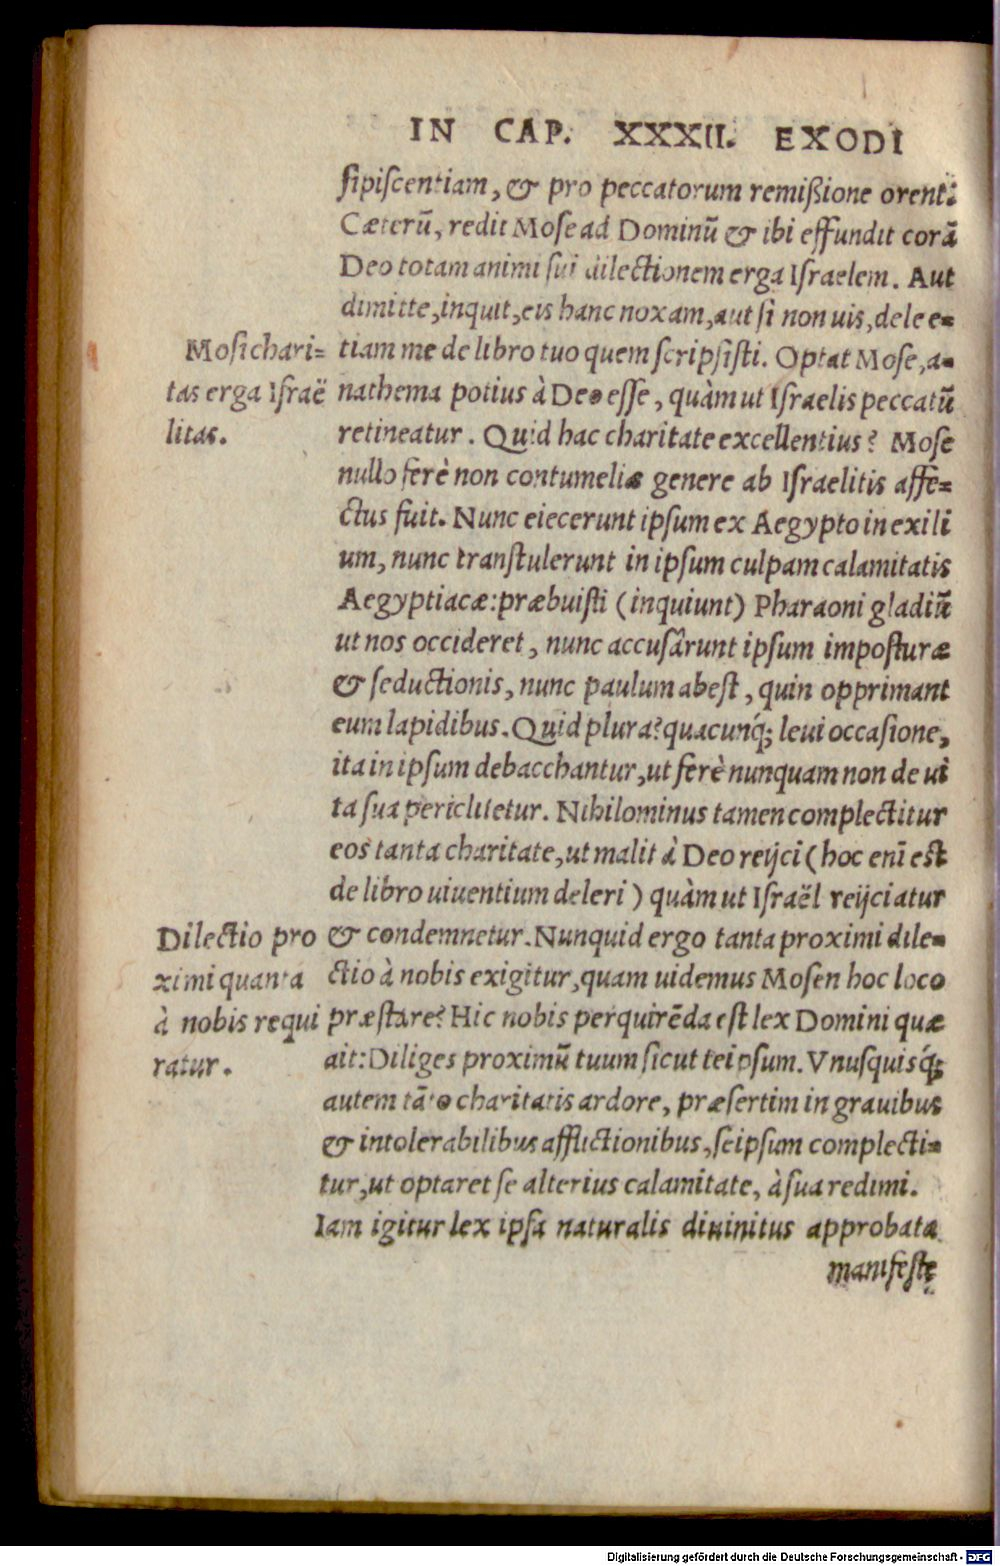 IN CAP. XXXII. EXODI
sipiscentiam, & pro peccatorum remißione orent.
Cæterũ, redit Mose ad Dominũ & ibi effundit corã
Deo totam animi sui dilectionem erga Israelem. Aut
dimitte, inquit, eis hanc noxam, aut si non uis, dele e-
tiam me de libro tuo quem scripsisti. Optat Mose, a-
nathema potius à Deo esse, quàm ut Israelis peccatũ
retineatur. Quid hac charitate excellentius? Mose
nullo ferè non contumeliæ genere ab Israelitis affe-
ctus fuit. Nunc eiecerunt ipsum ex Aegypto in exili
um, nunc transtulerunt in ipsum culpam calamitatis
Aegyptiacæ: præbuisti (inquiunt) Pharaoni gladiũ
ut nos occideret, nunc accusârunt ipsum imposturæ
& seductionis, nunc paulum abest, quin opprimant
eum lapidibus. Quid plura? quacunq́; leui occasione,
ita in ipsum debacchantur, ut ferè nunquam non de ui
ta sua periclitetur. Nihilominus tamen complectitur
eos tanta charitate, ut malit à Deo reijci (hoc enĩ est
de libro uiuentium deleri) quàm ut Israël reijciatur
& condemnetur. Nunquid ergo tanta proximi dile-
ctio à nobis exigitur, quam uidemus Mosen hoc loco
præstare? Hic nobis perquirẽda est lex Domini quæ
ait: Diliges proximũ tuum sicut teipsum. Vnusquisq́;
autem tãto charitatis ardore, præsertim in grauibus
& intolerabilibus afflictionibus, seipsum complecti-
tur, ut optaret se alterius calamitate, à sua redimi.
Iam igitur lex ipsa naturalis diuinitus approbata
manifeste
Mosi chari-
tas erga Israë
litas.
Dilectio pro
ximi quanta
à nobis requi
ratur.
Digitalisierung gefördert durch die Deutsche Forschungsgemeinschaft - DFG